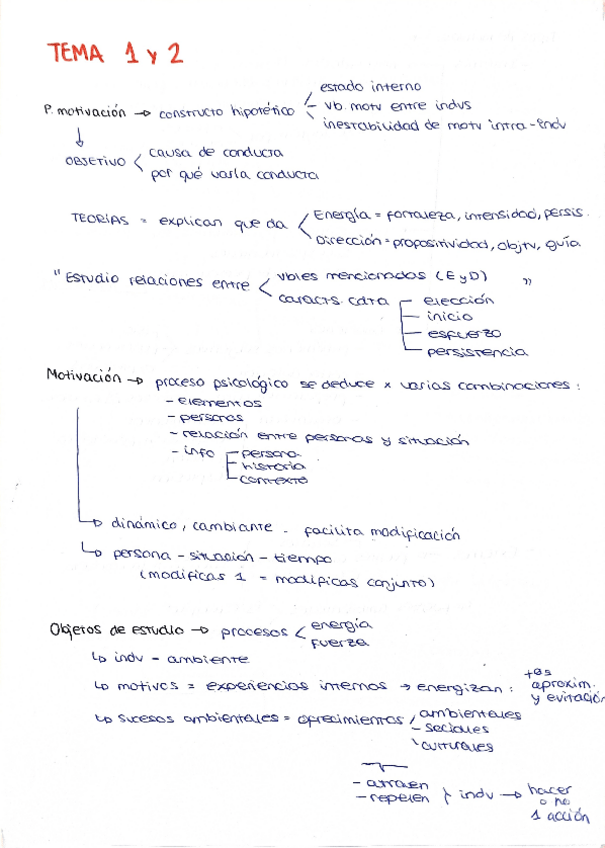 TEMA 1 y 2
estado interno
P. motivación → constructo hipotético - vb. motv entre indvs
inestabilidad de motv intra-indv
↓
OBJETIVO < causa de conducta
por qué varía conducta
TEORÍAS = explican que da < Energía = fortaleza, intensidad, persis.
Dirección = propositividad, objtv, guía
"Estudio relaciones entre < vbles mencionados (E y D) "
caracts. cdta - elección
- inicio
- esfuerzo
- persistencia
Motivación → proceso psicológico se deduce x varias combinaciones:
- elementos
- personas
- relación entre personas y situación
- info - persona
- historia
- contexto
↳ dinámico, cambiante - facilita modificación
↳ persona - situación - tiempo
(modificas 1 = modificas conjunto)
Objetos de estudio → procesos < energía
fuerza
↳ indv - ambiente
↳ motivos = experiencias internas → energizan: +es aproxim. y evitación
↳ sucesos ambientales = ofrecimientos - ambientales
- sociales
- culturales
- atraen
- repelen } indv → hacer o no 1 acción